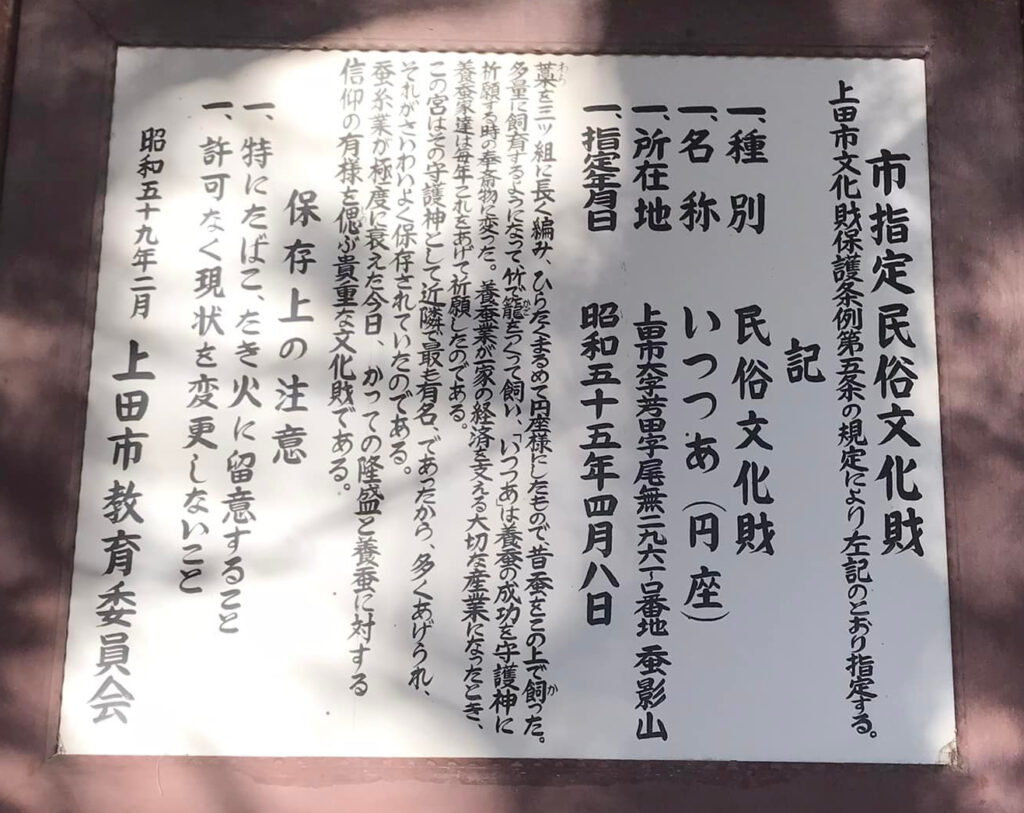 市指定民俗文化財
上田市文化財保護条例第五条の規定により左記のとおり指定する。
記
一、種別 民俗文化財
一、名称 いつつあ(円座)
一、所在地 上田市大字芳田字尾無二九六一口番地 蚕影山
一、指定年月日 昭和五十五年四月八日
藁を三ッ組に長く編み、ひらたくまるめて円座様にしたもので、昔蚕をこの上で飼った。
多量に飼育するようになって竹で籠をつくって飼い、「いつつあ」は養蚕の成功を守護神に
祈願する時の奉斎物に変った。養蚕業が一家の経済を支える大切な産業になったとき、
養蚕家達は毎年これをあげて祈願したのである。
この宮はその守護神として近隣で最も有名、であったから、多くあげられ、
それがさいわいよく保存されていたのである。
蚕糸業が極度に衰えた今日、かっての隆盛と養蚕に対する
信仰の有様を偲ぶ貴重な文化財である。
保存上の注意
一、特にたばこ、たき火に留意すること
一、許可なく現状を変更しないこと
昭和五十九年二月 上田市教育委員会